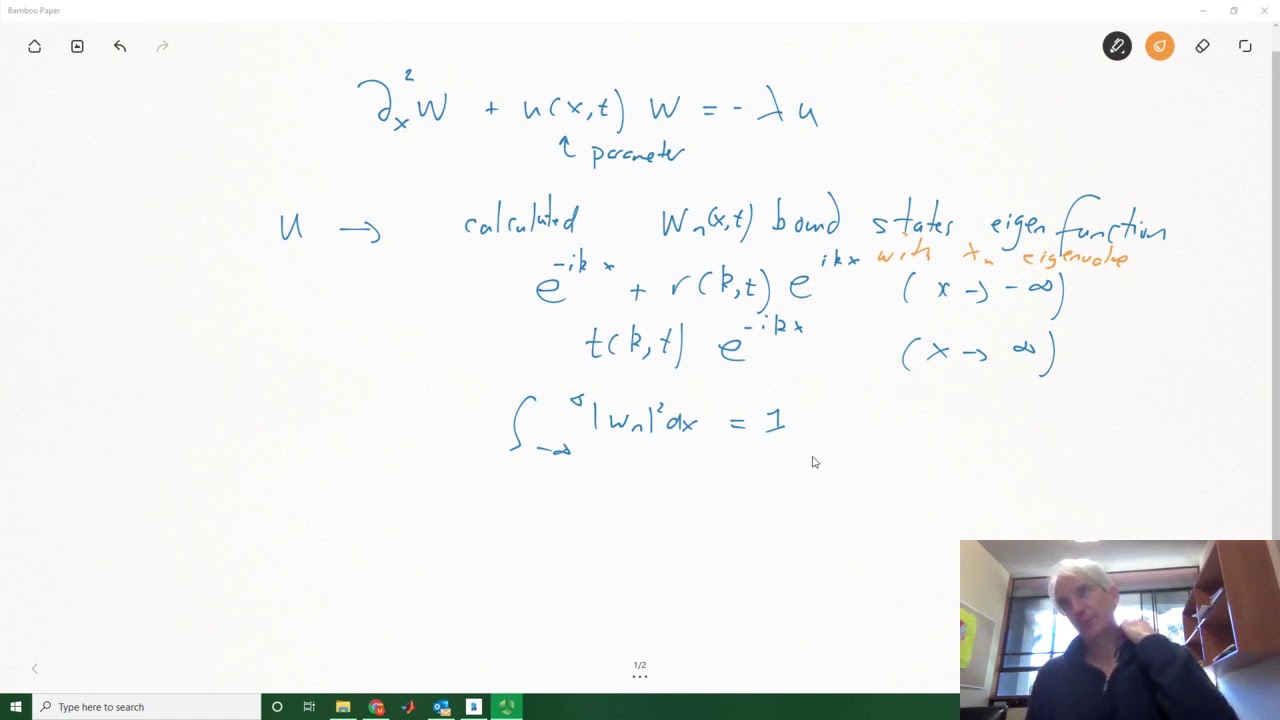 Bamboo Paper
∂ₓ²W + u(x,t) W = - λ u
↑ parameter
u → calculated Wₙ(x,t) bound states eigen function
with λₙ eigenvalue
e^{-ikx} + r(k,t) e^{ikx} (x → -∞)
t(k,t) e^{-ikx} (x → ∞)
∫_{-∞}^{∞} |wₙ|² dx = 1
1/2
Type here to search